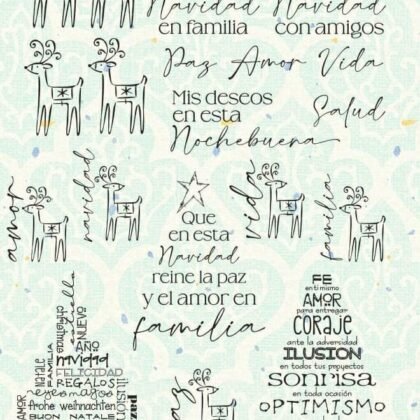 Navidad
en familia
Navidad
con amigos
Paz Amor Vida
Mis deseos
en esta
Nochebuena
Salud
amor
navidad
vida
familia
Que
en esta
Navidad
reine la paz
y el amor en
familia
FE
en ti mismo
AMOR
para entregar
CORAJE
ante la adversidad
ILUSION
en todos tus proyectos
sonrisa
en toda ocasión
OPTIMISMO
FAMILIA
christmas
NUEVO
AÑO
navidad
FELICIDAD
REGALOS
reyes magos
frohe weihnachten
BUON NATALE
ilusion
paz
paz